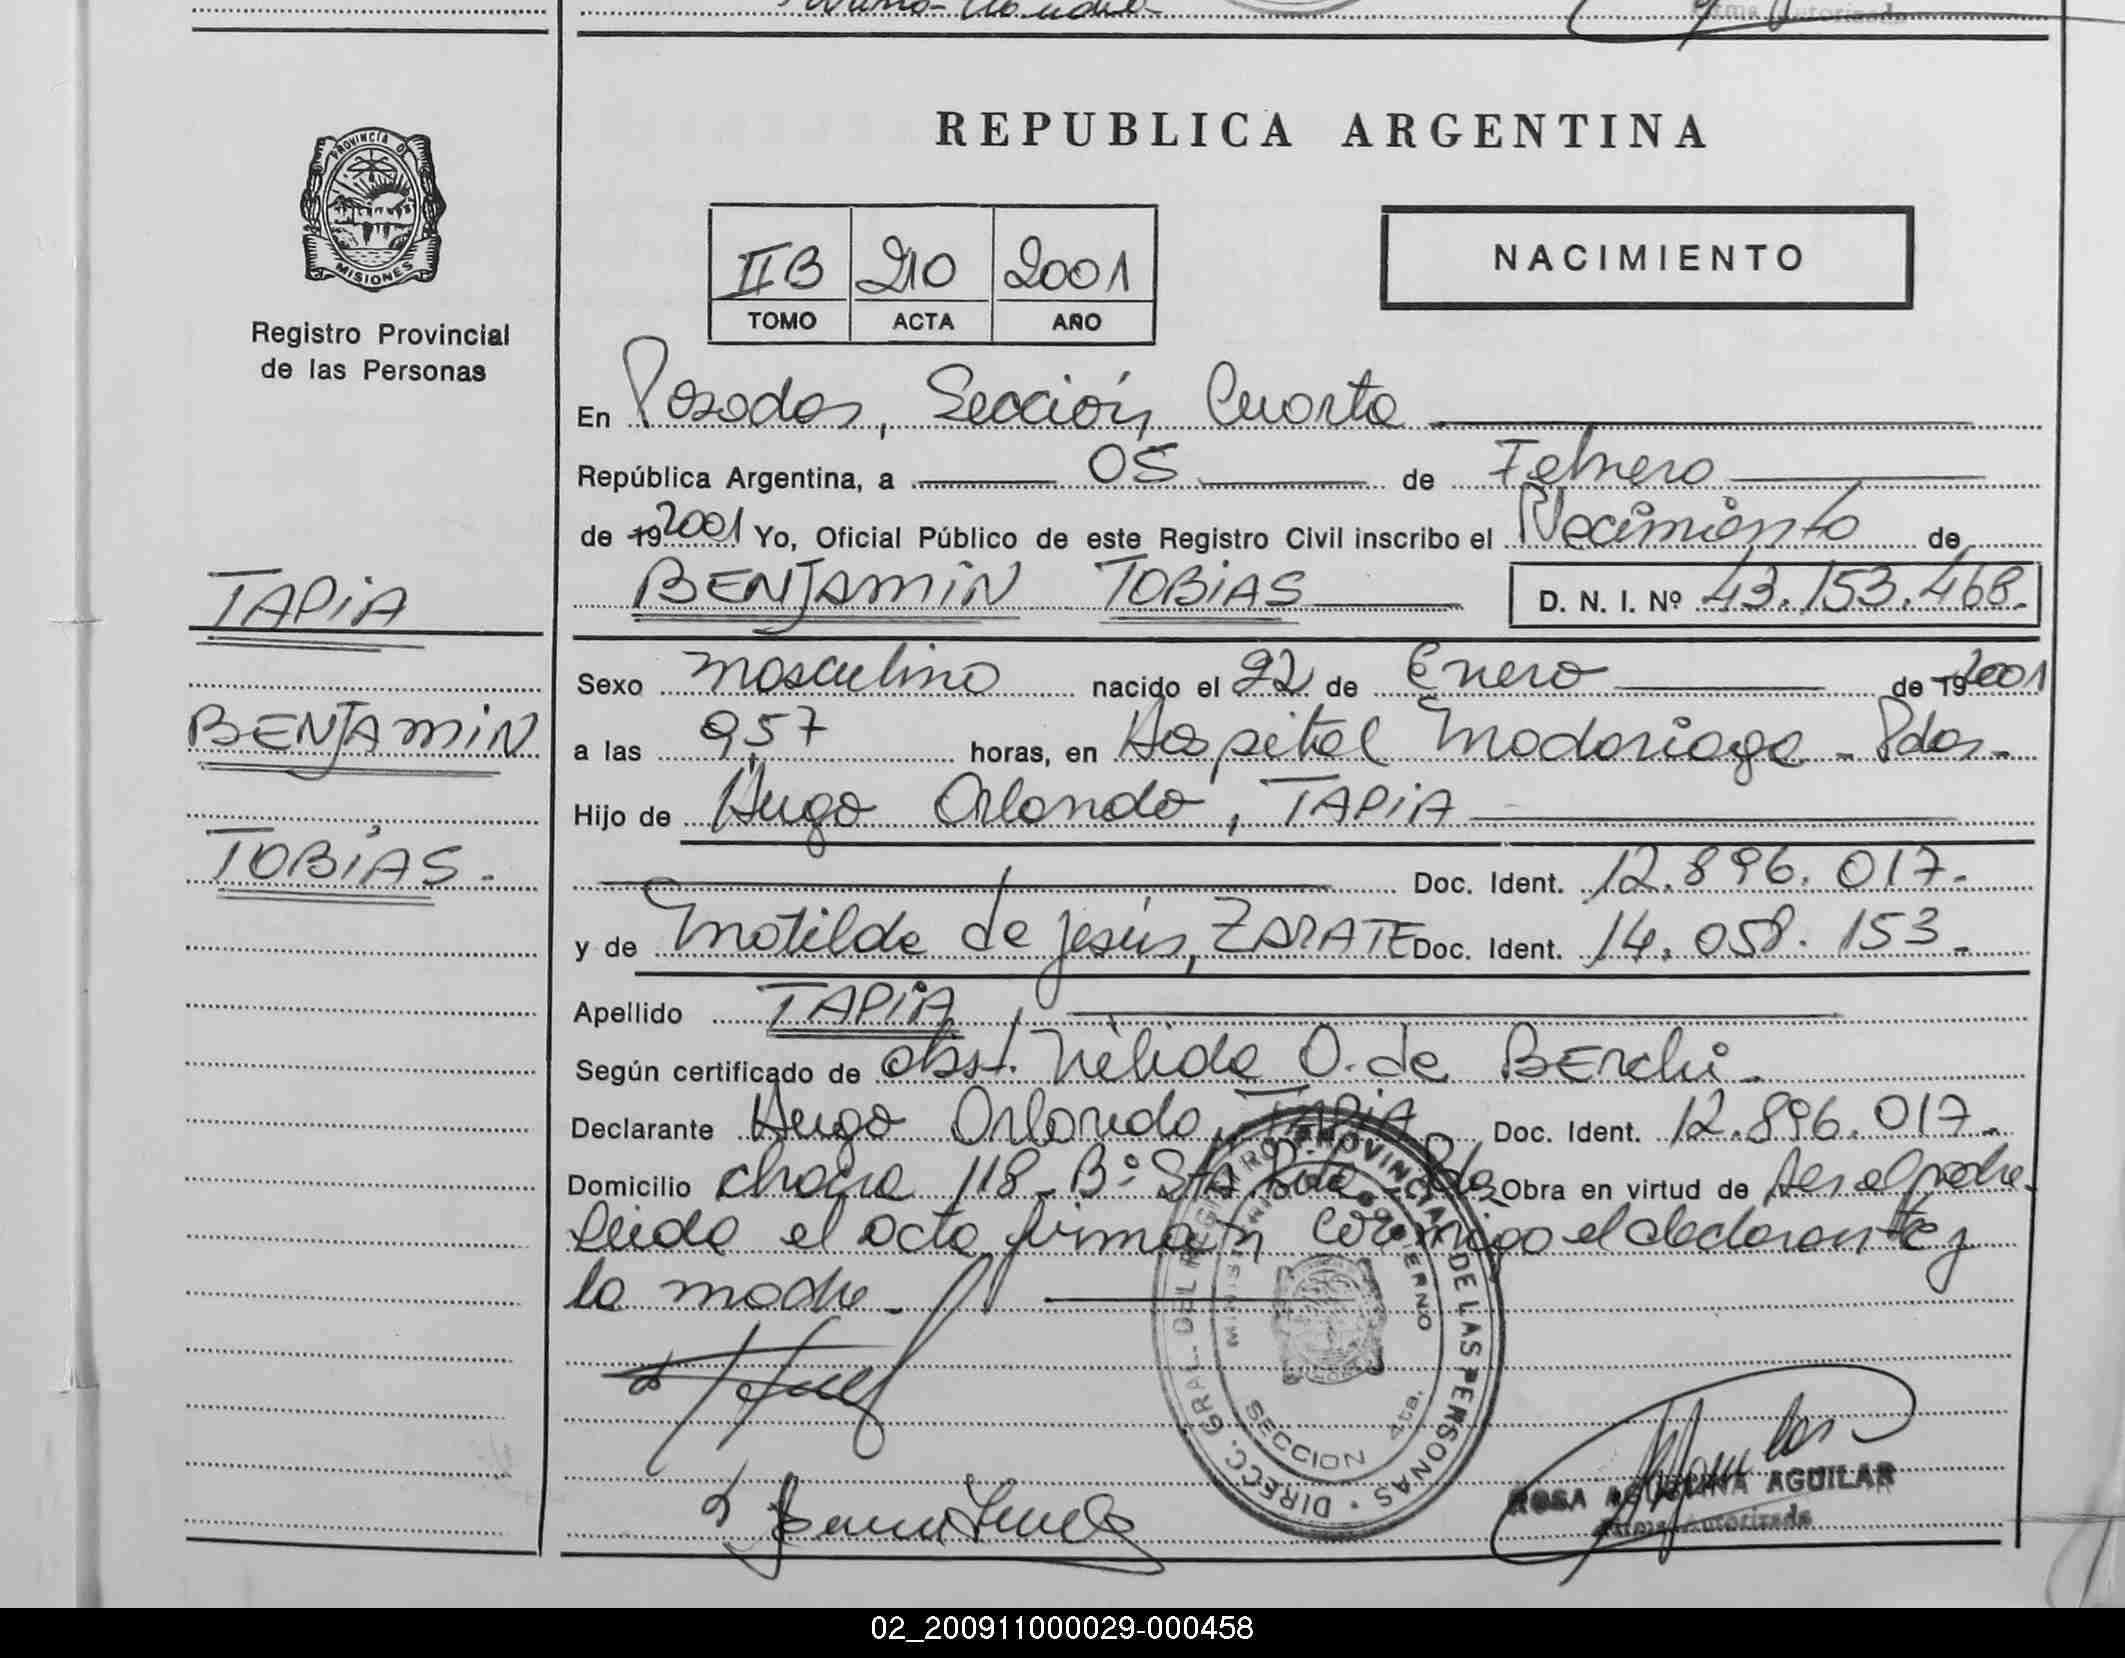 Firma Autorizada
PROVINCIA D
MISIONES
Registro Provincial
de las Personas
TAPIA
BENJAMIN
TOBIAS.
REPUBLICA ARGENTINA
IIB 210 2001
TOMO ACTA AÑO
NACIMIENTO
En Posadas, Sección Cuarta
República Argentina, a 05 de Febrero
de 19 2001 Yo, Oficial Público de este Registro Civil inscribo el Nacimiento de
BENJAMIN TOBIAS D. N. I. Nº 43.153.468.
Sexo masculino nacido el 22 de Enero de 19 2001
a las 9,57 horas, en Hospital Madariaga - Pdas.
Hijo de Hugo Orlando, TAPIA
Doc. Ident. 12.896.017.
y de Matilde de Jesús, ZARATE Doc. Ident. 14.058.153.
Apellido TAPIA
Según certificado de obst. Nélida O. de Berchi.
Declarante Hugo Orlando, TAPIA Doc. Ident. 12.896.017.
Domicilio chacra 118 - Bº Sta Rita - Pdas Obra en virtud de ser el padre.
Leida el acta firman conmigo el declarante y
la madre.
DIRECC. GRAL. DEL REGISTRO PROVINCIAL DE LAS PERSONAS
MINISTERIO DE GOBIERNO
SECCION 4ta.
ROSA AGUILAR
Firma Autorizada
02_200911000029-000458